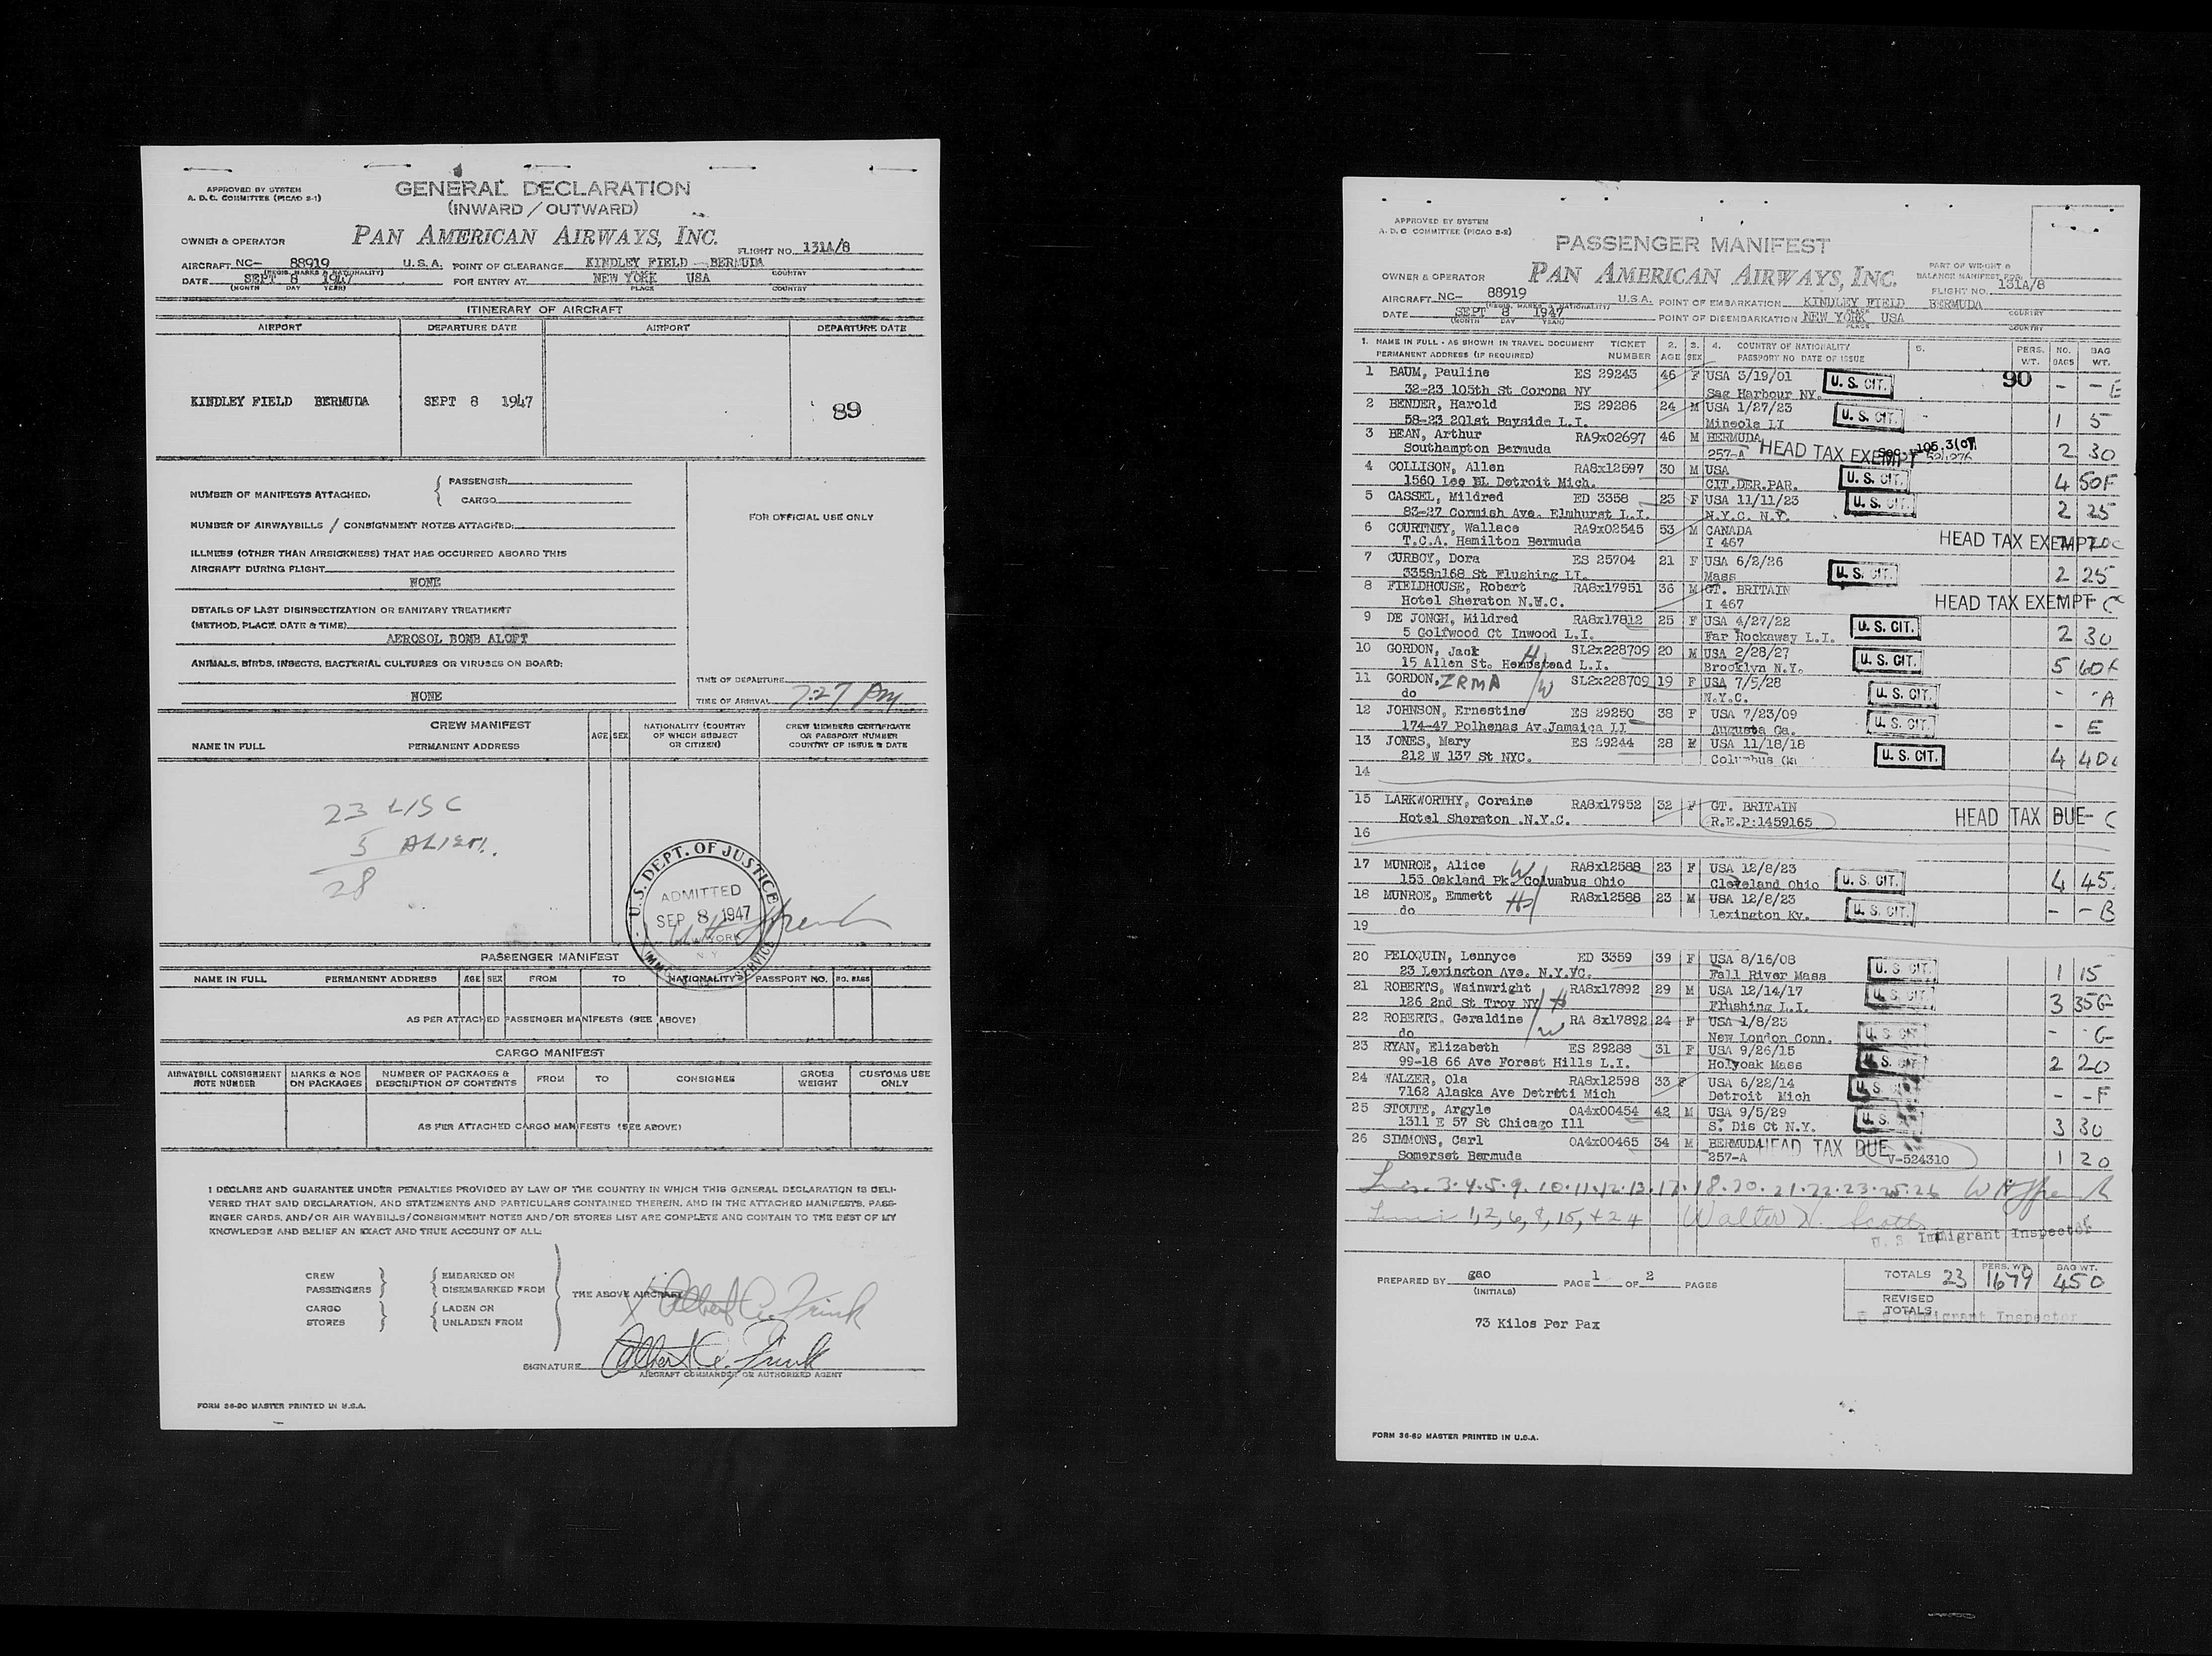 APPROVED BY SYSTEM
A. D. C. COMMITTEE (PICAO 2-1)
GENERAL DECLARATION
(INWARD / OUTWARD)
OWNER & OPERATOR PAN AMERICAN AIRWAYS, INC. FLIGHT NO. 131A/8
AIRCRAFT NC- 88919 U.S.A. POINT OF CLEARANCE KINDLEY FIELD BERMUDA
(REGIS. MARKS & NATIONALITY) COUNTRY
DATE SEPT 8 1947 FOR ENTRY AT NEW YORK USA
(MONTH DAY YEAR) PLACE COUNTRY
ITINERARY OF AIRCRAFT
AIRPORT DEPARTURE DATE AIRPORT DEPARTURE DATE
KINDLEY FIELD BERMUDA SEPT 8 1947 89
NUMBER OF MANIFESTS ATTACHED: PASSENGER
CARGO
FOR OFFICIAL USE ONLY
NUMBER OF AIRWAYBILLS / CONSIGNMENT NOTES ATTACHED:
ILLNESS (OTHER THAN AIRSICKNESS) THAT HAS OCCURRED ABOARD THIS
AIRCRAFT DURING FLIGHT
NONE
DETAILS OF LAST DISINSECTIZATION OR SANITARY TREATMENT
(METHOD, PLACE, DATE & TIME)
AEROSOL BOMB ALOFT
ANIMALS, BIRDS, INSECTS, BACTERIAL CULTURES OR VIRUSES ON BOARD:
NONE
TIME OF DEPARTURE
TIME OF ARRIVAL 7:27 PM
CREW MANIFEST
NAME IN FULL PERMANENT ADDRESS AGE SEX NATIONALITY (COUNTRY OF WHICH SUBJECT OR CITIZEN) CREW MEMBERS CERTIFICATE OR PASSPORT NUMBER COUNTRY OF ISSUE & DATE
23 USC
5 ALIEN.
28
U.S. DEPT. OF JUSTICE
ADMITTED
SEP 8 1947
NEW YORK
N. Y.
IMMIGRATION SERVICE
PASSENGER MANIFEST
NAME IN FULL PERMANENT ADDRESS AGE SEX FROM TO NATIONALITY PASSPORT NO. NO. BAGS
AS PER ATTACHED PASSENGER MANIFESTS (SEE ABOVE)
CARGO MANIFEST
AIRWAYBILL CONSIGNMENT NOTE NUMBER MARKS & NOS ON PACKAGES NUMBER OF PACKAGES & DESCRIPTION OF CONTENTS FROM TO CONSIGNEE GROSS WEIGHT CUSTOMS USE ONLY
AS PER ATTACHED CARGO MANIFESTS (SEE ABOVE)
I DECLARE AND GUARANTEE UNDER PENALTIES PROVIDED BY LAW OF THE COUNTRY IN WHICH THIS GENERAL DECLARATION IS DELI-
VERED THAT SAID DECLARATION, AND STATEMENTS AND PARTICULARS CONTAINED THEREIN, AND IN THE ATTACHED MANIFESTS, PASS-
ENGER CARDS, AND/OR AIR WAYBILLS/CONSIGNMENT NOTES AND/OR STORES LIST ARE COMPLETE AND CONTAIN TO THE BEST OF MY
KNOWLEDGE AND BELIEF AN EXACT AND TRUE ACCOUNT OF ALL:
CREW EMBARKED ON
PASSENGERS DISEMBARKED FROM THE ABOVE AIRCRAFT X Albert C. Frink
CARGO LADEN ON
STORES UNLADEN FROM
SIGNATURE Albert C. Frink
AIRCRAFT COMMANDER OR AUTHORIZED AGENT
FORM 36-90 MASTER PRINTED IN U.S.A.
APPROVED BY SYSTEM
A. D. C COMMITTEE (PICAO 2-2)
PASSENGER MANIFEST
PART OF WEIGHT &
BALANCE MANIFEST FOR
OWNER & OPERATOR PAN AMERICAN AIRWAYS, INC. FLIGHT NO. 131A/8
AIRCRAFT NC- 88919 U.S.A. POINT OF EMBARKATION KINDLEY FIELD BERMUDA
(REGIS. MARKS & NATIONALITY) PLACE COUNTRY
DATE SEPT 8 1947 POINT OF DISEMBARKATION NEW YORK USA
(MONTH DAY YEAR) PLACE COUNTRY
1. NAME IN FULL - AS SHOWN IN TRAVEL DOCUMENT TICKET 2. 3. 4. COUNTRY OF NATIONALITY 5. PERS. NO. BAG
PERMANENT ADDRESS (IF REQUIRED) NUMBER AGE SEX PASSPORT NO DATE OF ISSUE WT. BAGS WT.
1 BAUM, Pauline ES 29243 46 F USA 3/19/01 U. S. CIT. 90 - - E
32-23 105th St Corona NY Sag Harbour NY.
2 BENDER, Harold ES 29286 24 M USA 1/27/23 U. S. CIT. 1 5
58-23 201st Bayside L.I. Mineola LI
3 BEAN, Arthur RA9x02697 46 M BERMUDA HEAD TAX EXEMPT 105.3(c) 2 30
Southampton Bermuda 257-A
4 COLLISON, Allen RA8x12597 30 M USA U. S. CIT. 4 50F
1560 Lee BL Detroit Mich. CIT.DER.PAR.
5 CASSEL, Mildred ED 3358 23 F USA 11/11/23 U. S. CIT. 2 25
83-27 Cormish Ave. Elmhurst L.I. N.Y.C. N.Y.
6 COURTNEY, Wallace RA9x02545 53 M CANADA HEAD TAX EXEMPT
T.C.A. Hamilton Bermuda I 467
7 CURBOY, Dora ES 25704 21 F USA 6/2/26 U. S. CIT. 2 25
3358n168 St Flushing LI. Mass
8 FIELDHOUSE, Robert RA8x17951 36 M GT. BRITAIN HEAD TAX EXEMPT - C
Hotel Sheraton N.W.C. I 467
9 DE JONGH, Mildred RA8x17812 25 F USA 4/27/22 U. S. CIT. 2 30
5 Golfwood Ct Inwood L.I. Far Rockaway L.I.
10 GORDON, Jack H SL2x228709 20 M USA 2/28/27 U. S. CIT. 5 60A
15 Allen St. Hempstead L.I. Brooklyn N.Y.
11 GORDON, IRMA W SL2x228709 19 F USA 7/5/28 U. S. CIT. - - A
do N.Y.C.
12 JOHNSON, Ernestine ES 29250 38 F USA 7/23/09 U. S. CIT. - E
174-47 Polhenas Av.Jamaica LI Augusta Ga.
13 JONES, Mary ES 29244 28 F USA 11/18/18 U. S. CIT. 4 40
212 W 137 St NYC. Columbus Ga
14
15 LARKWORTHY, Coraine RA8x17952 32 F GT. BRITAIN HEAD TAX DUE - C
Hotel Sheraton .N.Y.C. R.E.P:1459165
16
17 MUNROE, Alice W RA8x12588 23 F USA 12/8/23 U. S. CIT. 4 45
153 Oakland Pk. Columbus Ohio Cleveland Ohio
18 MUNROE, Emmett H RA8x12588 23 M USA 12/8/23 U. S. CIT. - - B
do Lexington Ky.
19
20 PELOQUIN, Lennyce ED 3359 39 F USA 8/16/08 U. S. CIT. 1 15
23 Lexington Ave. N.Y.VC. Fall River Mass
21 ROBERTS, Wainwright RA8x17892 29 M USA 12/14/17 U. S. CIT. 3 35G
126 2nd St Troy NY H Flushing L.I.
22 ROBERTS, Geraldine W RA 8x17892 24 F USA 1/8/23 U. S. CIT. - - G
do New London Conn.
23 RYAN, Elizabeth ES 29288 31 F USA 9/26/15 U. S. CIT. 2 20
99-18 66 Ave Forest Hills L.I. Holyoak Mass
24 WALZER, Ola RA8x12598 33 F USA 6/22/14 U. S. - - F
7162 Alaska Ave Detroti Mich Detroit Mich
25 STOUTE, Argyle OA4x00454 42 M USA 9/5/29 U. S. 3 30
1311 E 57 St Chicago Ill S. Dis Ct N.Y.
26 SIMMONS, Carl OA4x00465 34 M BERMUDA HEAD TAX DUE 1 20
Somerset Bermuda 257-A V-524310
Lines 3.4.5.9. 10.11.12.13.17.18.20.21.22.23.25.26
Lines 1,2,6,8,15,+24 Walter H. Scott
U. S. Immigrant Inspector
PREPARED BY gao PAGE 1 OF 2 PAGES
(INITIALS)
TOTALS 23 PERS. WT. 1679 BAG WT. 450
REVISED
TOTALS
U. S. Immigrant Inspector
73 Kilos Per Pax
FORM 36-89 MASTER PRINTED IN U.S.A.